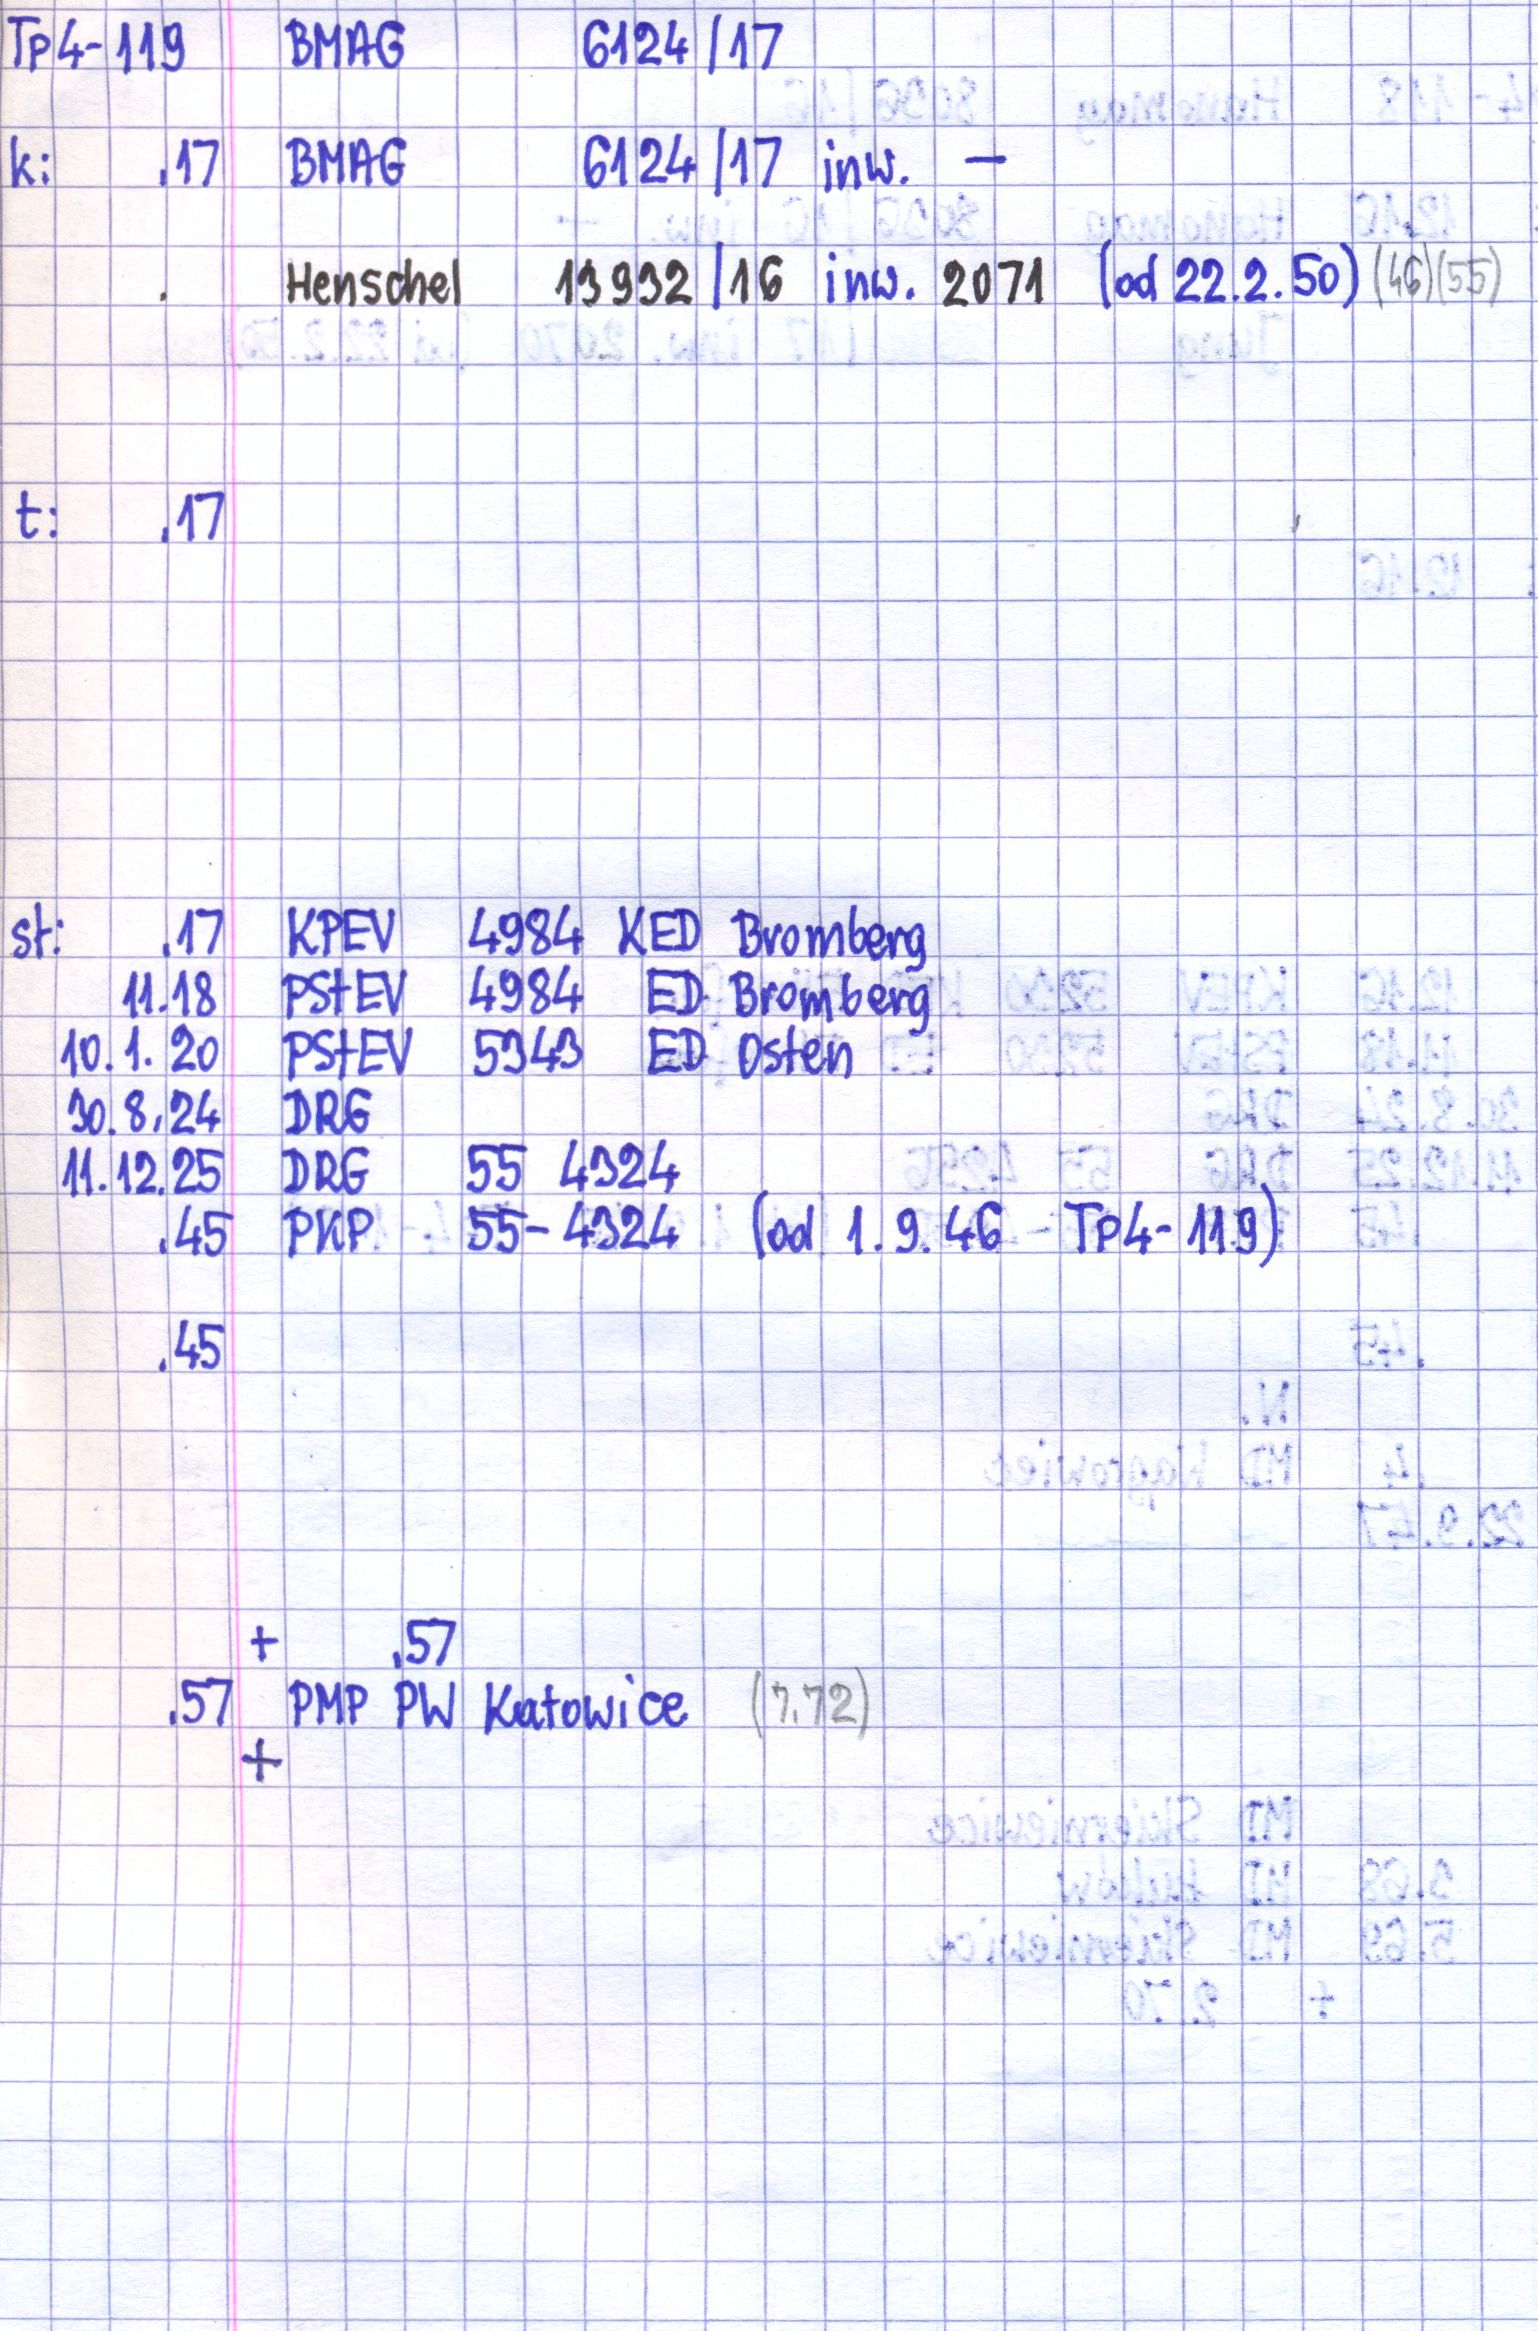 Tp4-119 BMAG 6124/17
k: .17 BMAG 6124/17 inw. —
. Henschel 13932/16 inw. 2071 (od 22.2.50) (46)(55)
t: .17
st: .17 KPEV 4984 KED Bromberg
11.18 PStEV 4984 ED Bromberg
10.1.20 PStEV 5343 ED Osten
30.8.24 DRG
11.12.25 DRG 55 4324
.45 PKP 55-4324 (od 1.9.46 - Tp4-119)
.45
+ .57
.57 PMP PW Katowice (7.72)
+